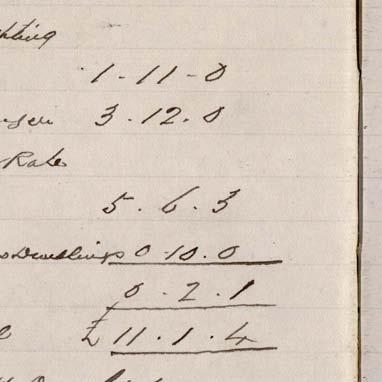 hting
1 - 11 - 0
3 . 12 . 0
Rate
5 . 6 . 3
Dwellings 0 . 10 . 0
0 . 2 . 1
£ 11 . 1 . 4